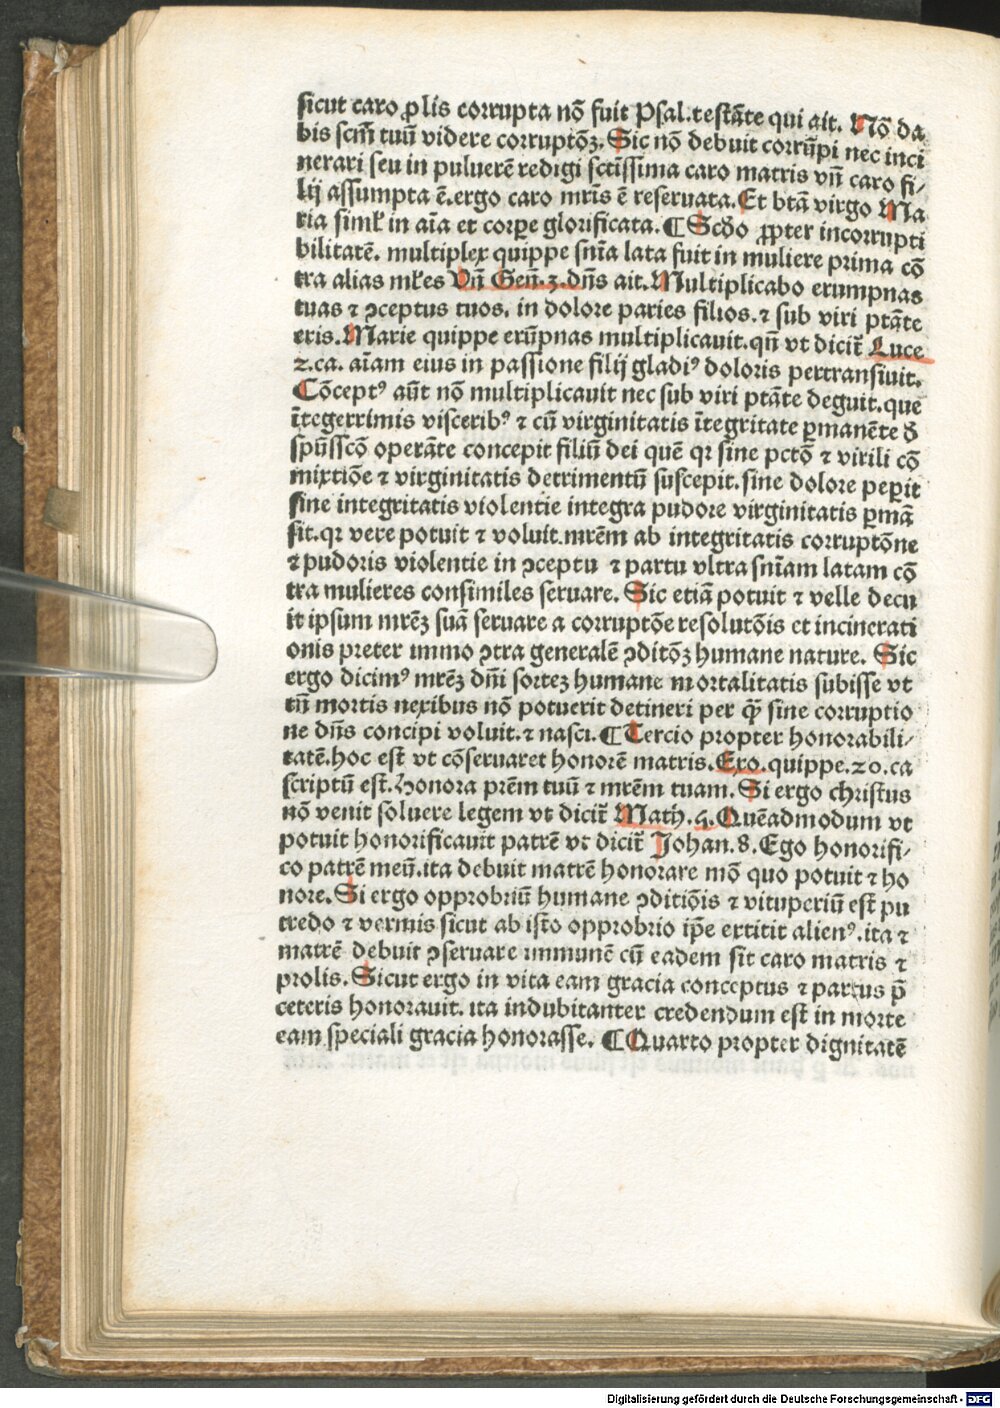 sicut caro ꝓlis corrupta nō fuit Psal.testāte qui ait. Nō da
bis scm̄ tuū videre corruptōꝫ. Sic nō debuit corrūpi nec inci
nerari seu in puluerē redigi sctissima caro matris vn̄ caro fi/
lij assumpta ē.ergo caro mr̄is ē reseruata.Et btā virgo Ma
ria simꝉ in aīa et corꝑe glorificata. ¶ Scd̄o ꝓpter incorrupti
bilitatē. multiplex quippe sn̄ia lata fuit in muliere prima cō
tra alias mꝉes Vn̄ Gen̄.3.dn̄s ait. Multiplicabo erumpnas
tuas ⁊ ꝯceptus tuos. in dolore paries filios.⁊ sub viri ptāte
eris. Marie quippe erūpnas multiplicauit.qn̄ vt dicit̄ Luce
2.ca. aīam eius in passione filij gladiꝰ doloris pertransiuit.
Cōceptꝰ aūt nō multiplicauit nec sub viri ptāte deguit.que
ītegerrimis visceribꝰ ⁊ cū virginitatis ītegritate ꝑmanēte d̄
spūsscō operāte concepit filiū dei quē qꝛ sine pctō ⁊ virili cō
mixtiōe ⁊ virginitatis detrimentū suscepit.sine dolore peꝑit
sine integritatis violentie integra pudore virginitatis ꝑmā
sit.qꝛ vere potuit ⁊ voluit.mr̄em ab integritatis corruptōne
⁊ pudoris violentie in ꝯceptu ⁊ partu vltra sn̄iam latam cō
tra mulieres consimiles seruare. Sic etiā potuit ⁊ velle decu
it ipsum mr̄eꝫ suā seruare a corruptōe resolutōis et incinerati
onis preter immo ꝯtra generalē ꝯditōꝫ humane nature. Sic
ergo dicimꝰ mr̄eꝫ dn̄i sorteꝫ humane mortalitatis subisse vt
tn̄ mortis nexibus nō potuerit detineri per qꝫ̄ sine corruptio
ne dn̄s concipi voluit.⁊ nasci.¶ Tercio propter honorabili/
tatē.hoc est vt cōseruaret honorē matris.Exo.quippe.20.ca
scriptū est.honora pr̄em tuū ⁊ mr̄em tuam. Si ergo christus
nō venit soluere legem vt dicit̄ Math.5.Quēadmodum vt
potuit honorificauit patrē vt dicit̄ Johan.8.Ego honorifi/
co patrē meū.ita debuit matrē honorare mō quo potuit ⁊ ho
nore. Si ergo opprobriū humane ꝯditiōis ⁊ vituperiū est pu
tredo ⁊ vermis sicut ab isto opprobrio ip̄e extitit alienꝰ.ita ⁊
matrē debuit ꝯseruare immunē cū eadem sit caro matris ⁊
prolis. Sicut ergo in vita eam gracia conceptus ⁊ partus p̄
ceteris honorauit. ita indubitanter credendum est in morte
eam speciali gracia honorasse. ¶ Quarto propter dignitatē
Digitalisierung gefördert durch die Deutsche Forschungsgemeinschaft - DFG